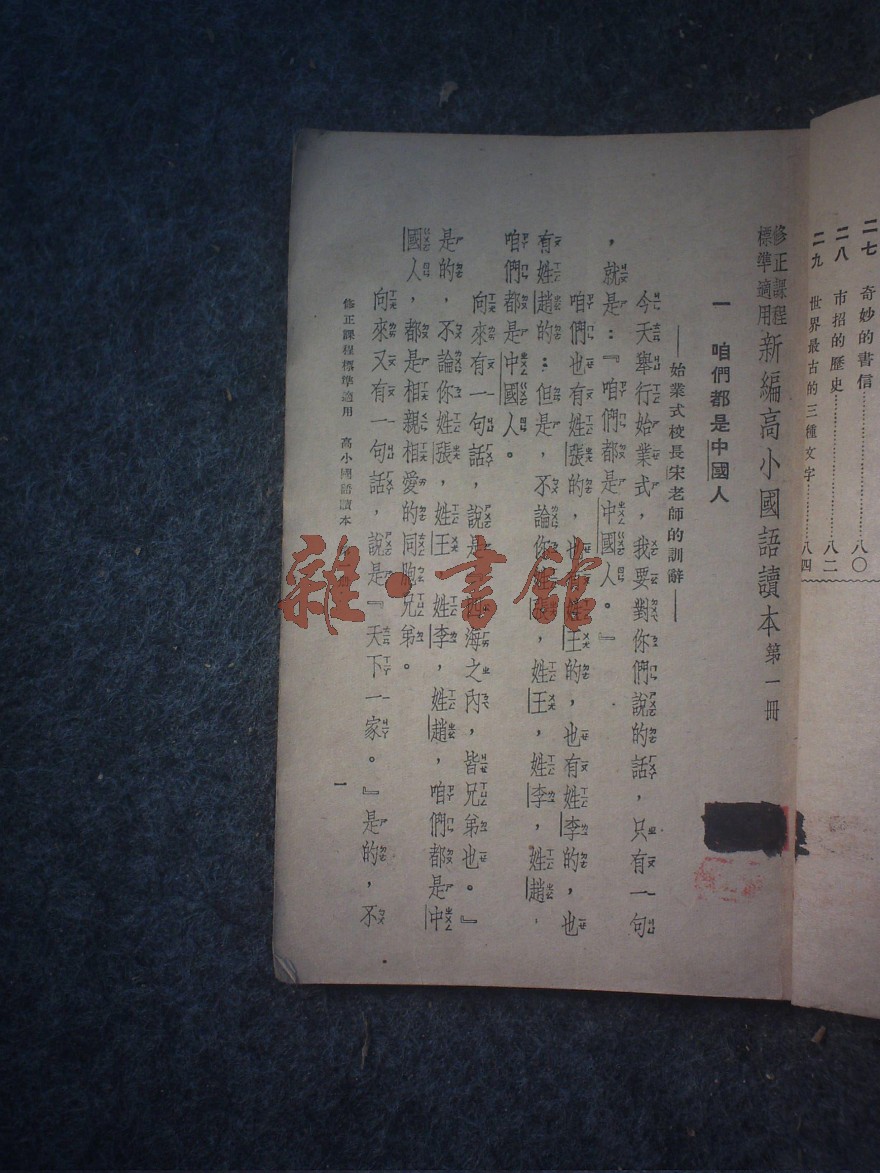 二七　奇妙的書信……………………八〇
二八　市招的歷史……………………八二
二九　世界最古的三種文字…………八四
修正課程標準適用新編高小國語讀本第一冊
一　咱們都是中國人
——始業式校長宋老師的訓辭——
今天舉行始業式，我要對你們說的話，只有一句
，就是：『咱們都是中國人。』
咱們也有姓張的，也有姓王的，也有姓李的，也
有姓趙的：但是，不論你姓張，姓王，姓李，姓趙，
咱們都是中國人。
向來有一句話，說是『四海之內，皆兄弟也。』
是的，不論你姓張，姓王　姓李，姓趙，咱們都是中
國人，都是相親相愛的同胞兄弟。
向來又有一句話，說是『天下一家。』是的，不
修正課程標準適用　高小國語讀本
一
雜·書館